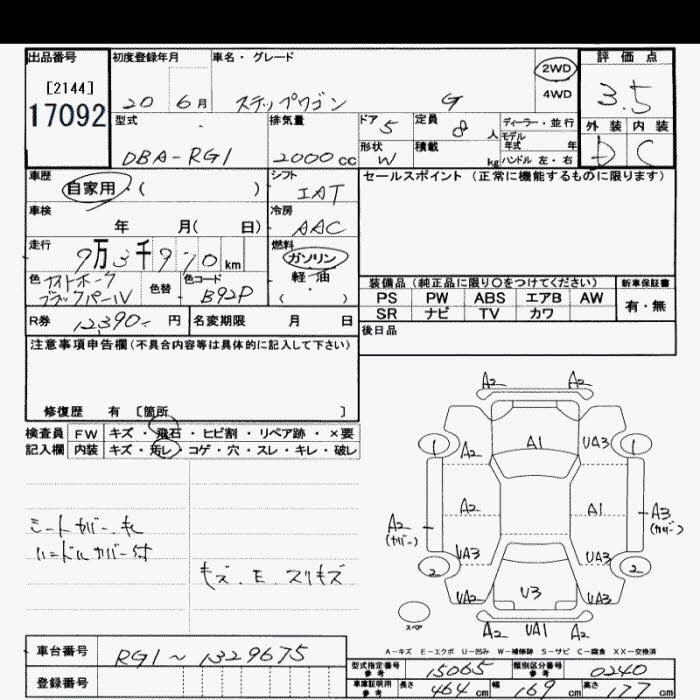 出品番号 初度登録年月 車名・グレード 評価点
[2144]
17092
20 6月 ステップワゴン G 2WD 3.5
4WD
型式 排気量 ドア 5 定員 8人 ディーラー・並行 外装 内装
モデル年式 年
DBA-RG1 2000cc 形状 W 積載 kg ハンドル 左・右 D C
車歴 シフト セールスポイント (正常に機能するものに限ります)
自家用・( ) IAT
車検 冷房
年 月( 日) AAC
走行 燃料
9万3千970km ガソリン
軽・油
( )
色 ナイトホーク 色替 色コード
ブラックパール B92P
装備品(純正品に限り〇をつけてください) 新車保証書
PS PW ABS エアB AW 有・無
SR ナビ TV カワ
R券 12,390.- 円 名変期限 月 日
後日品
注意事項申告欄(不具合内容等は具体的に記入して下さい)
修復歴 有 〔箇所 〕
検査員 FW キズ・飛石・ヒビ割・リペア跡・×要
記入欄 内装 キズ・汚レ・コゲ・穴・スレ・キレ・破レ
シートカバー
ハンドルカバー付
キズ.E.スリキズ
A2 A2
1 A1 UA3 1
A2
A2 A1
A2 A3
(カバー) (カバー)
UA3 UA3
2 2
UA2 U3 UA3
A2 UA1 A2
スペア
A-キズ E-エクボ U-凹み W-補修跡 S-サビ C-腐食 XX-交換済
車台番号 RG1~1329675
登録番号
型式指定番号 参考 15065 類別区分番号 参考 0240
車庫証明用 参考 長さ 464cm 幅 169cm 高さ 177cm